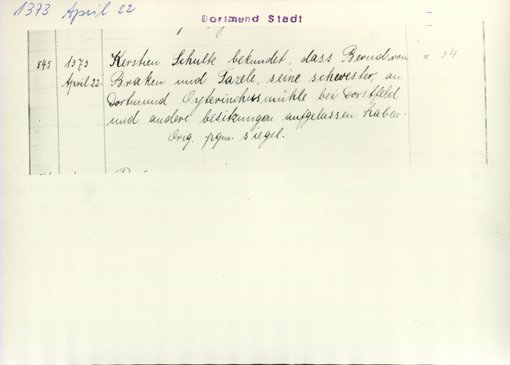 1373 April 22
Dortmund Stadt
545 1373 Kersten Schulte bekundet, dass Bernd von " 54
April 22. Braken und Fazele, seine schwester, an
Dortmund mühle bei Dorstfeld
und andere besitzungen aufgelassen haben.
Orig. pgm. siegel.